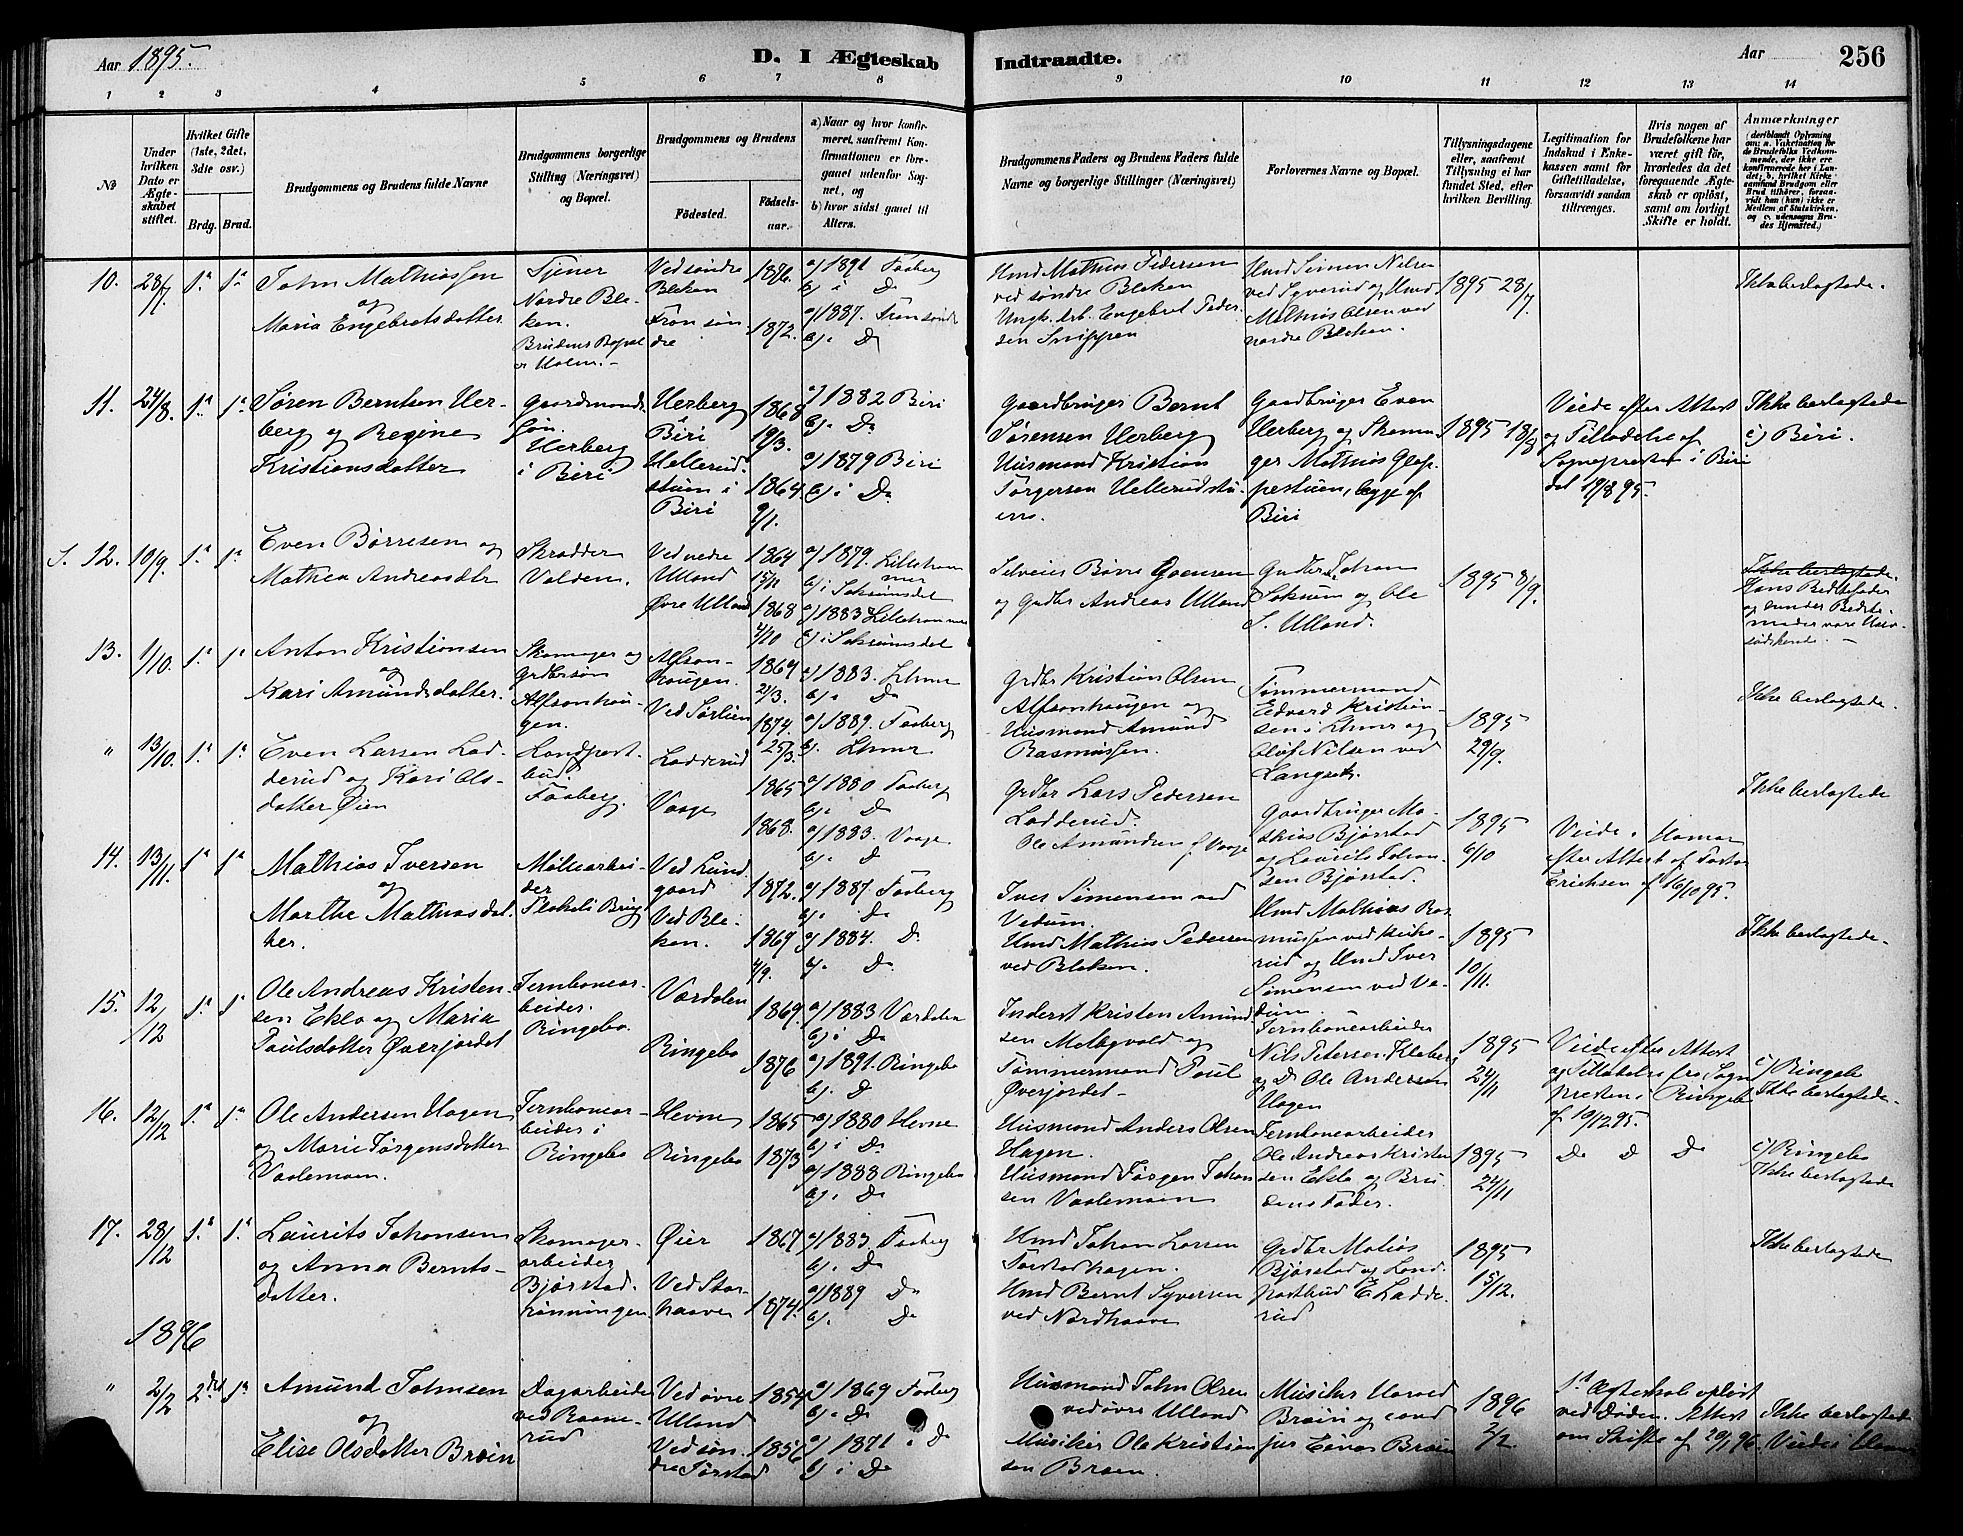 Aar 1895.
D. I Ægteskab
Indtraadte.
Aar
256
1 2 3 4 5 6 7 8 9 10 11 12 13 14
No
Under hvilken Dato er Ægteskabet stiftet.
Hvilket Gifte (1ste, 2det, 3die osv.)
Brdg. Brud.
Brudgommens og Brudens fulde Navne
Brudgommens borgerlige Stilling (Næringsvei) og Bopæl.
Brudgommens og Brudens
Fødested.
Fødselsaar.
a) Naar og hvor konfirmeret, saafremt Konfirmationen er foregaaet udenfor Sognet, og
b) hvor sidst gaaet til Alters.
Brudgommens Faders og Brudens Faders fulde Navne og borgerlige Stillinger (Næringsvei)
Forlovernes Navne og Bopæl.
Tillysningsdagene eller, saafremt Tillysning ei har fundet Sted, efter hvilken Bevilling.
Legitimation for Indskud i Enkekassen samt for Giftetilladelse, forsaavidt saadan tiltrænges.
Hvis nogen af Brudefolkene har været gift før, hvorledes da det foregaaende Ægteskab er opløst, samt om lovligt Skifte er holdt.
Anmærkninger
10. 28/7. 1ª 1ª
John Mathiassen
og
Maria Engebretsdatter
Tjener
Nordre Bleken.
Brudens Bopæl er Holm.
Ved søndre Bleken 1876.
Fron søndre 1872.
a) 1891 Faaberg
b) i Do
a) 1887. Fron søndre
b) i Do
Hmd Mathias Pedersen
ved søndre Bleken
Ungk. Arb. Engebret Pedersen Snippen
Hmd Simen Nilsen
ved Syverud og Hmd
Mathias Olsen ved
nordre Bleken.
1895 28/7.
Ikke beslægtede.
11. 24/8. 1ª 1ª
Søren Berntsen Uerberg og Regine
Kristiansdatter
Gaardmandssøn.
Uerberg
i Biri
Uerberg
Biri
1868
19/3.
Hellerudstuen i
Biri
1864
9/1.
a) 1882 Biri
b) Do
a) 1879 Biri
b) i Do
Gaardbruger Bernt
Sørensen Uerberg
Husmand Kristian
Torgersen Hellerudstuen.
Gaardbruger Even
Uerberg og Skomager Mathias Gløppestuen, begge af
Biri
1895 18/8
Viede efter Attest
og Tilladelse af
Sognepresten i Biri
dat 19/8 95.
Ikke beslægtede
c) Biri.
S. 12. 10/9. 1ª 1ª
Even Børresen og
Mathea Andreasdtr
Skrædder
Volden.
Ved nedre
Ulland
Øvre Ulland
1864
1868
4/10
a) 1879. Lillehammer
b) i Saksumdal
a) 1883 Lillehammer
b) i Saksumdal
Selveier Børre Evensen
og Grdbr Andreas Ulland
Grdbr Johan
Saksum og Ole
S. Ulland.
1895 8/9.
Ikke beslægtede.
Hans Bedstefader
og hendes Bedstemoder vare
13. 1/10. 1ª 1ª
Anton Kristiansen
og
Kari Amundsdatter.
Skomager og
grdbrsøn
Alfsonhaugen.
Alfsonhaugen.
Ved Sørlien
1869
21/3.
1874.
25/3.
a) 1883. Lhmr
b) Do
a) 1889. Faaberg
b) Lhmr
Grdbr Kristian Olsen
Alfsonhaugen og
Husmand Amund
Rasmussen.
Tømmermand
Edvard Kristiansen i Lhmr og
Oluf Nilsen ved
Langset.
1895
29/9.
Ikke beslægtede.
" 13/10. 1ª 1ª
Even Larsen Ladderud og Kari Olsdatter Øien
Landpostbud.
Faaberg.
Ladderud
Vaage
1865
1868.
a) 1880 Faaberg
b) Do
a) 1883. Vaage
b) Do
Grdbr Lars Pedersen
Ladderud.
Ole Amundsen f Vaage
Gaardbruger Mathias Bjørstad
og Laurits Johansen Bjørstad.
1895
6/10
Viede i Hamar
efter Attest af Pastor
Erichsen af 16/10 95.
Ikke beslægtede
14. 13/11. 1ª 1ª
Mathias Iversen
og
Marthe Mathiasdatter.
Mølnarbeider
Flakeli Brug
Ved Lundgaard
Ved Bleken.
1872.
1869
4/9.
a) 1887 Faaberg
b) Do
a) 1884. Do
b) Do
Iver Simensen ved
Vedum.
Hmd Mathias Pedersen
ved Bleken.
Hmd Mathias Rasmussen ved Kirkerud og Hmd Iver
Simensen ved Vedum.
1895
10/11.
Ikke beslægtede.
15. 12/12 1ª 1ª
Ole Andreas Kristensen Eklo og Maria
Paulsdatter Øverjordet
Jernbanearbeider.
Ringebo.
Værdalen
Ringebo
1869.
1876
a) 1883 Værdalen
b) i Do
a) 1891. Ringebo
b) Do
Inderst Kristen Amundsen Molegvold og
Tømmermand Paul
Øverjordet
Jernbanearbeider
Nils Petersen Kleberg
og Do Ole Andersen
Hagen
1895
24/11
Viede efter Attest
og Tilladelse fra Sognepresten i Ringebo
af 10/12 95.
c) Ringebo
Ikke beslægtede.
16. 12/12 1ª 1ª
Ole Andersen Hagen
og Marie Jørgensdatter
Vaalemoen.
Jernbanearbeider i
Ringebo
Hevne
Ringebo
1865
1873
a) 1880 Hevne
b) i Do
a) 1888 Ringebo
b) i Do
Husmand Anders Olsen
Hagen.
Husmand Jørgen Johansen Vaalemoen
Jernbanearbeider
Ole Andreas Kristensen Eklo og Brudens Fader.
1895
24/11
Do Do Do
c) Ringebo
Ikke beslægtede
17. 28/12 1ª 1ª
Laurits Johansen
og Anna Berntsdatter.
Skomagerarbeider
Bjørstadrønningen
Øier
Ved Storhaave
1867
1874.
a) 1883 Faaberg
b) Do
a) 1889 Do
b) Do
Hmd Johan Larsen
Torstadhagen.
Hmd Bernt Syversen
ved Nordhaave
Grdbr Matias
Bjørstad og Landpostbud E Ladderud
1895
15/12.
Ikke beslægtede
1896
" 2/2 2det 1ª
Amund Johnsen
og
Elise Olsdatter Bræin
Dagarbeider
ved Baanerud
Ved øvre
Ulland
Ved søndre Jørstad
1854
1856
a) 1869 Faaberg
b) Do
a) 1871 i Do
b) i Do
Husmand John Olsen
ved øvre Ulland
Musiker Ole Kristiansen Bræen.
Musiker Harald
Bræin og cand
jur Einar Bræin
1896
2/2.
1st Ægteskab opløst
ved Døden. Attest
om Skifte af 20/1 96.
Ikke beslægtede